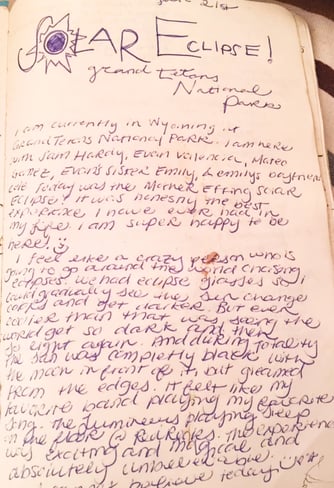 21st
SOLAR ECLIPSE!
grand tetons
National
Park
I am currently in Wyoming at
Grand Tetons National Park. I am here
with Sam Hardy, Evan Valencia, Mateo
Gomez, Evan's sister Emily, & emilys boyfriend
Today was the Mother Effing Solar
Eclipse! It was honestly the best
experience I have ever had in
my life. I am super happy to be
here!
I feel like a crazy person who is
going to go around the world chasing
eclipses. We had eclipse glasses so I
could gradually see the sun change
and get darker. But even
cooler than that was seeing the
world get so dark and then
so light again. And during totality
the sun was completly black with
the moon in front of it but gleamed
from the edges. It felt like my
favorite band playing my favorite
song. The Lumineers playing Sleep
on the floor @ Red Rocks. The experience
was exciting and magical and
absolutely unbelievable.
believe today!